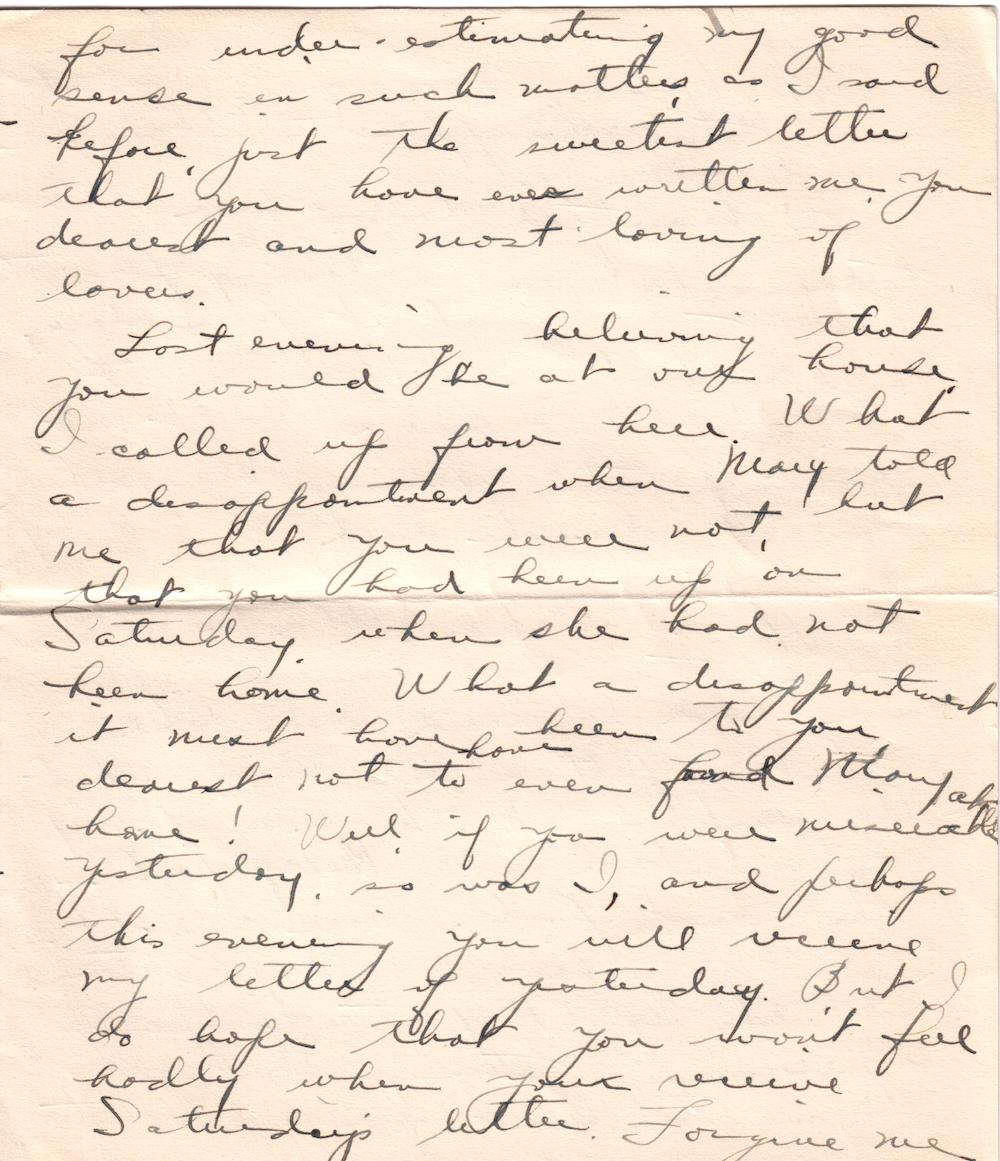 for under-estimating my good
sense in such matters, as I said
before, just the sweetest letter
that you have ever written me, you
dearest and most loving of
lovers.
Last evening, believing that
you would be at our house,
I called up from here. What
a disappointment when Mary told
me that you were not, but
that you had been up on
Saturday, when she had not
been home. What a disappointment
it must have been to you
dearest not to have even found Mary at
home! Well if you were miserable
yesterday, so was I, and perhaps
this evening you will receive
my letter of yesterday. But I
do hope that you won't feel
badly when you receive
Saturday's letter. Forgive me